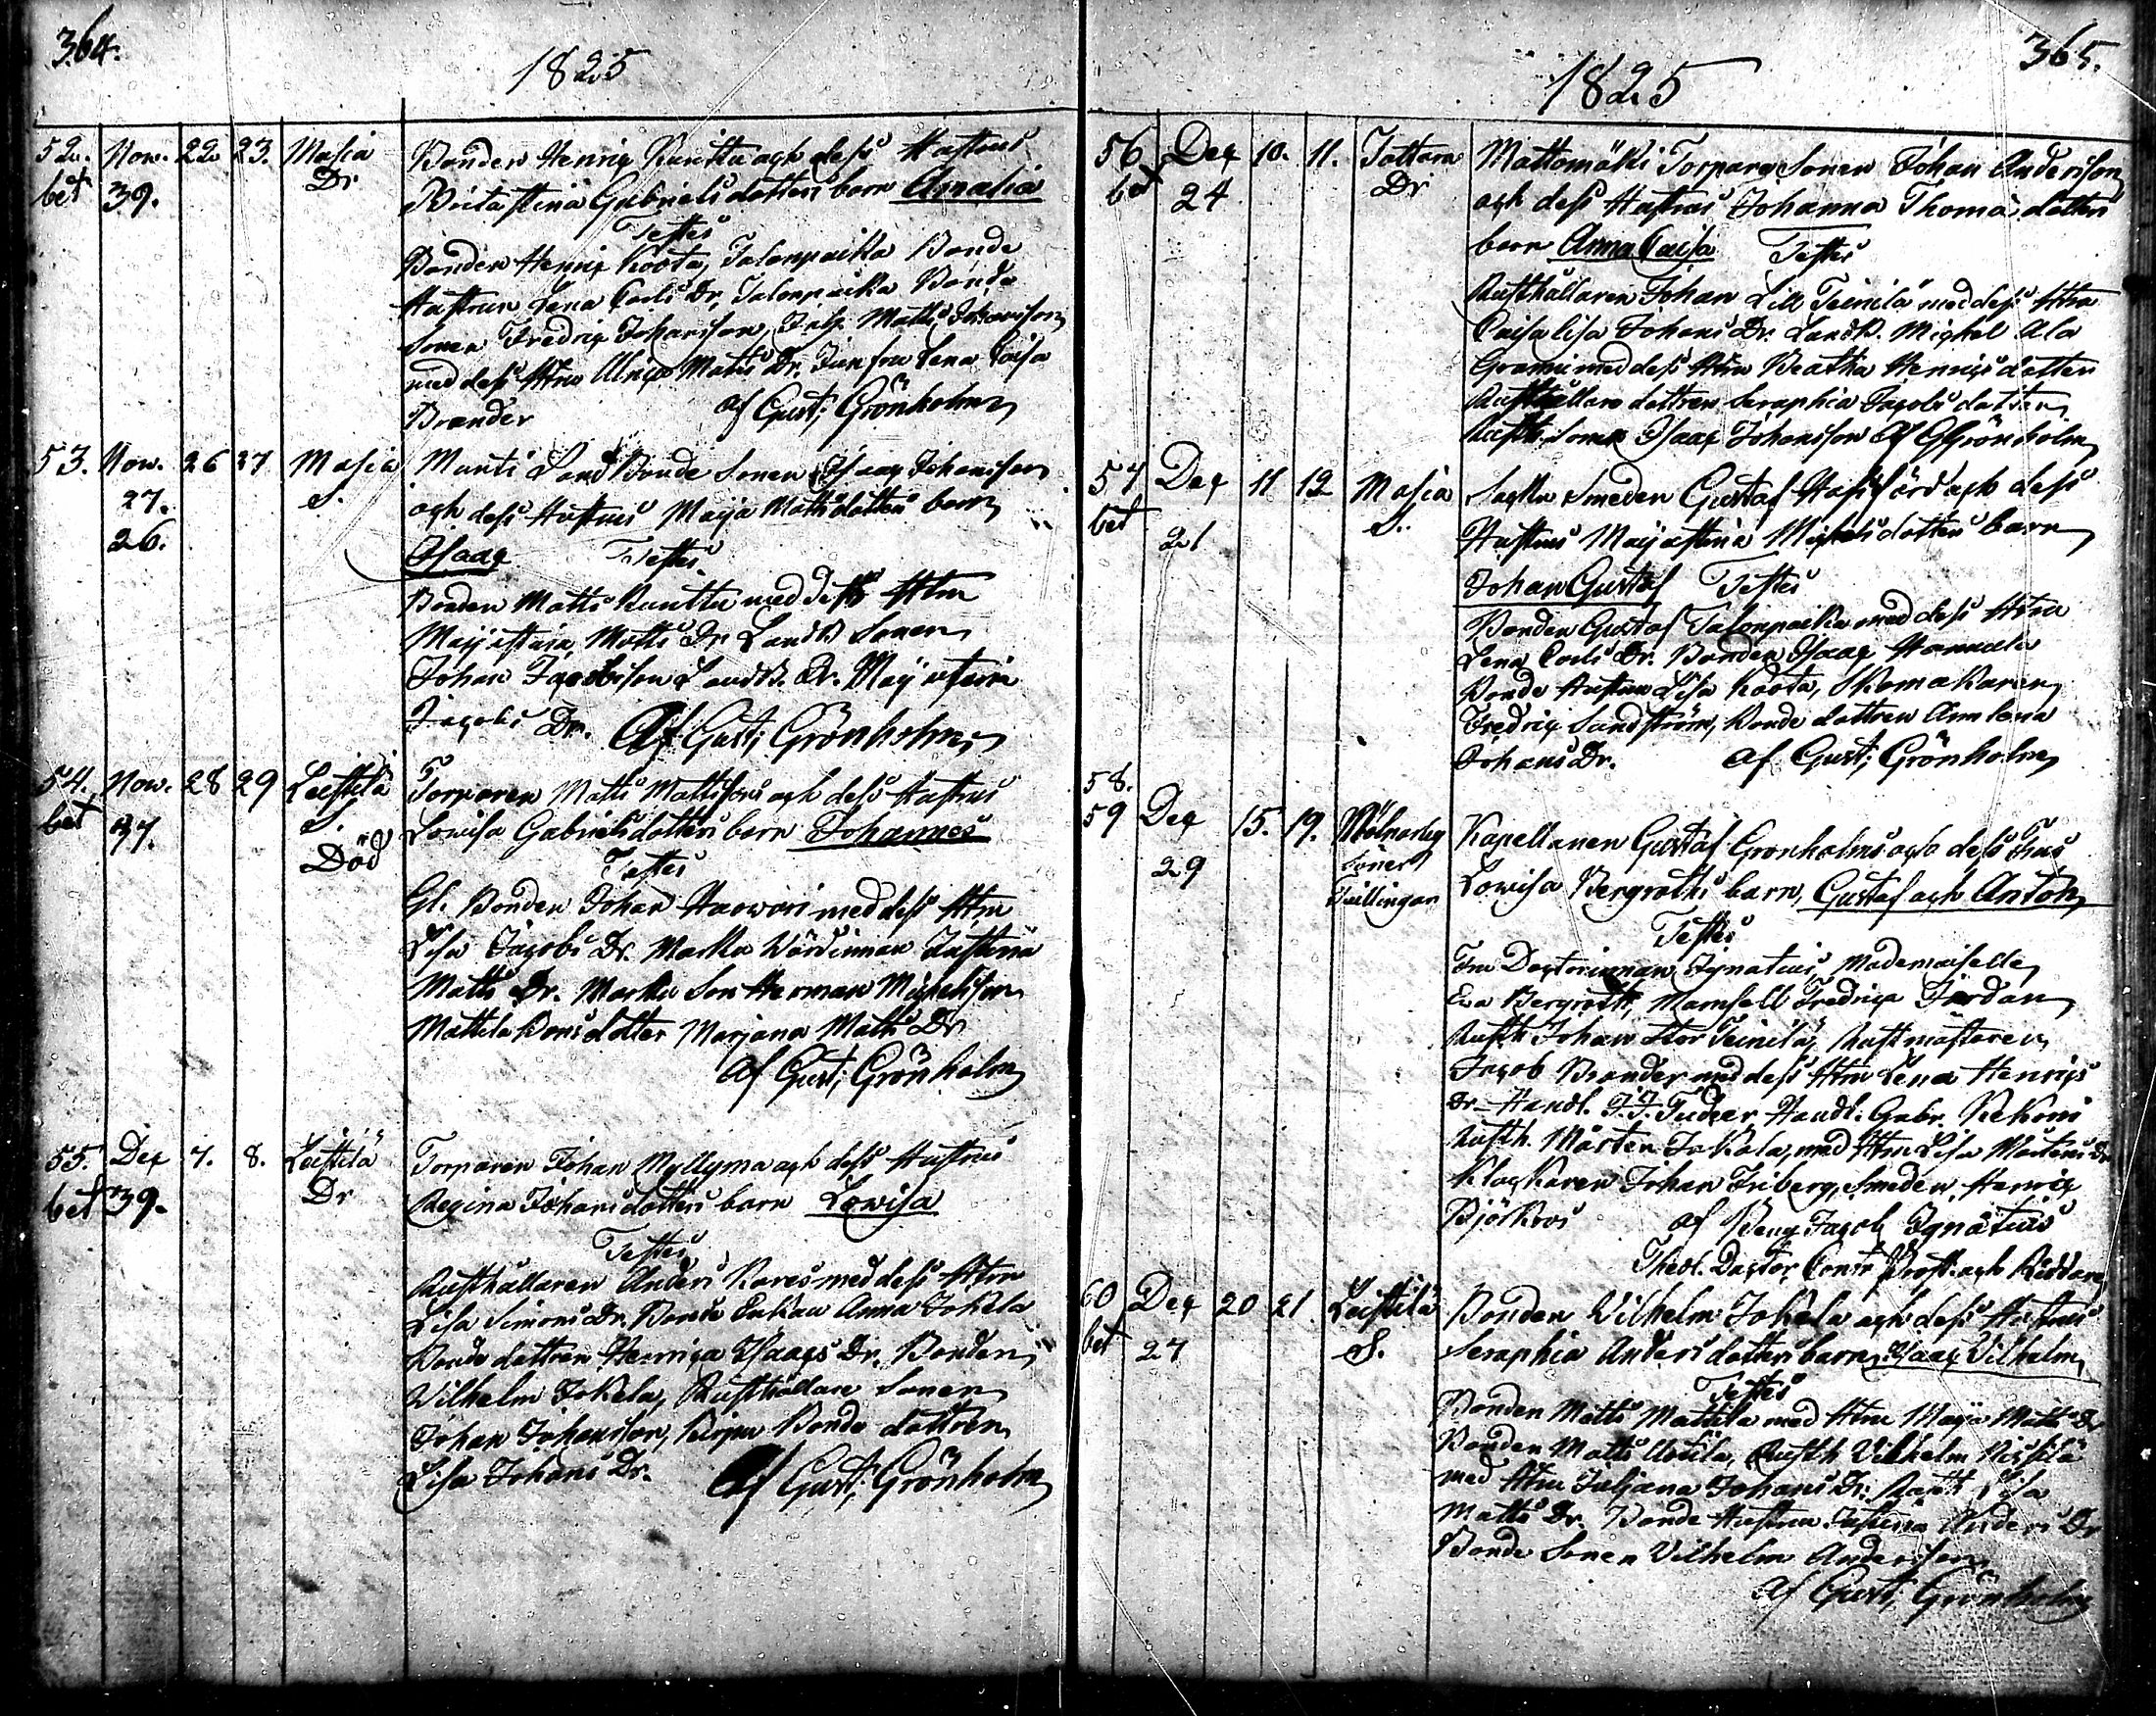 364.
1825
52. Nov. 22 23. Masia Bonden Henric Kunttu och dess Hustrus
bet 39. Dr Britastina Gabrielsdotters barn Amalia
Testes
Bonden Henric Koota, Talonpoika Bonde
Hustrun Lena Carls Dr, Talonpoika Bonde
Sonen Fredric Johansson, Matts Johansson
med dess Hstru Ulrica Matts Dr. Jumfru Lena Caisa
Brander af Gust; Grönholm
53. Nov. 26 27 Masia Munti Land Bonde Sonen Isaac Johansson
27. S. och dess Hustrus Maija Mattsdotters barn
26. Isaac Testes
Bonden Matts Kunttu med dess Hstru
Maijastina Matts Dr Landb Sonen
Johan Jacobsson Landb. Dr. Maijastina
Jacobs Dr. Af Gust; Grönholm
54. Nov. 28 29 Leistilä Torparen Matts Mattssons och dess Hustrus
bet 37. S. Lowisa Gabrielsdotters barn Johannes
Död Testes
Gl. Bonden Johan Haowari med dess Hstru
Lisa Jacobs Dr. Markku Värdinnan Justina
Matts Dr. Markku Son Herman Michelsson
Mattila Bonsdotter Marjana Matts Dr
af Gust; Grönholm
55. Dec 7. 8. Leistilä Torparen Johan Myllyma och dess Hustrus
bet 39. Dr Regina Johansdotters barn Lowisa
Testes
Rusthållaren Anders Kares med dess Hstru
Lisa Simons Dr. Bonde Enkan Anna Jokela
Bonde dottren Henrica Isaacs Dr. Bonden
Vilhelm Jokela, Rusthållare Sonen
Johan Johansson, Bonde dottren
Lisa Johans Dr. Af Gust; Grönholm
365.
1825
56 Dec 10. 11. Tattara Mattomäki Torpare Sonen Johan Andersson
bet 24 Dr och dess Hustrus Johanna Thomasdotters
barn Anna Caisa Testes
Rusthållaren Johan Lill Teinilä med dess Hstru
Caisa lisa Johans Dr. Landb. Michel Ala
Granni med dess Hstru Beatha Henricsdotter
Rusthållare dottren Seraphia Jacobsdotter
Rusth. Sonen Isaac Johansson Af G Grönholm
57 Dec 11 12 Masia Sockn Smeden Gustaf och dess
bet 21 S. Hustrus Maijastina Michelsdotters barn
Johan Gustaf Testes
Bonden Gustaf Talonpoika med dess Hstru
Lena Carls Dr. Bonden Isaac Hannula
Bonde Hustrun Lisa Koota, Skomakaren
Fredric Sandström, Bonde dottren Annlena
Johans Dr. af Gust; Grönholm
58.
59 Dec 15. 19. Mölnarby Kapellanen Gustaf Grönholms och dess Frus
29 Söner Lowisa Bergroths barn, Gustaf och Anton
Tvillingar Testes
Fru Doctorinnan Ignatius, Mademoiselle
Eva Bergroth, Mamsell Fredrica Jordan
Rusth Johan Stor Teinilä, Rustmästaren
Jacob Brander med dess Hstru Lena Henrics
Dr Handl. J.J. Tudeer, Handl. Gabr. Kekoni
Rusth. Mårten Jokala, med Hstru Lisa Mårtens Dr
Klockaren Johan Friberg, Smeden Henric
Björkroos af Beng Jacob Ignatius
Theol. Doctor Contr Prost och Riddare
60 Dec 20 21. Leistilä Bonden Vilhelm Jokela och dess Hustrus
bet 27 S. Seraphia Andersdotters barn, Isaac Vilhelm
Testes
Bonden Matts Mattila med Hstru Maija Matts Dr
Bonden Matts Uotila, Rusth Vilhelm
med Hstru Juljana Johans Dr: Lisa
Matts Dr. Bonde Hustrun Justina Anders Dr
Bonde Sonen Vilhelm Andersson
af Gust; Grönholm